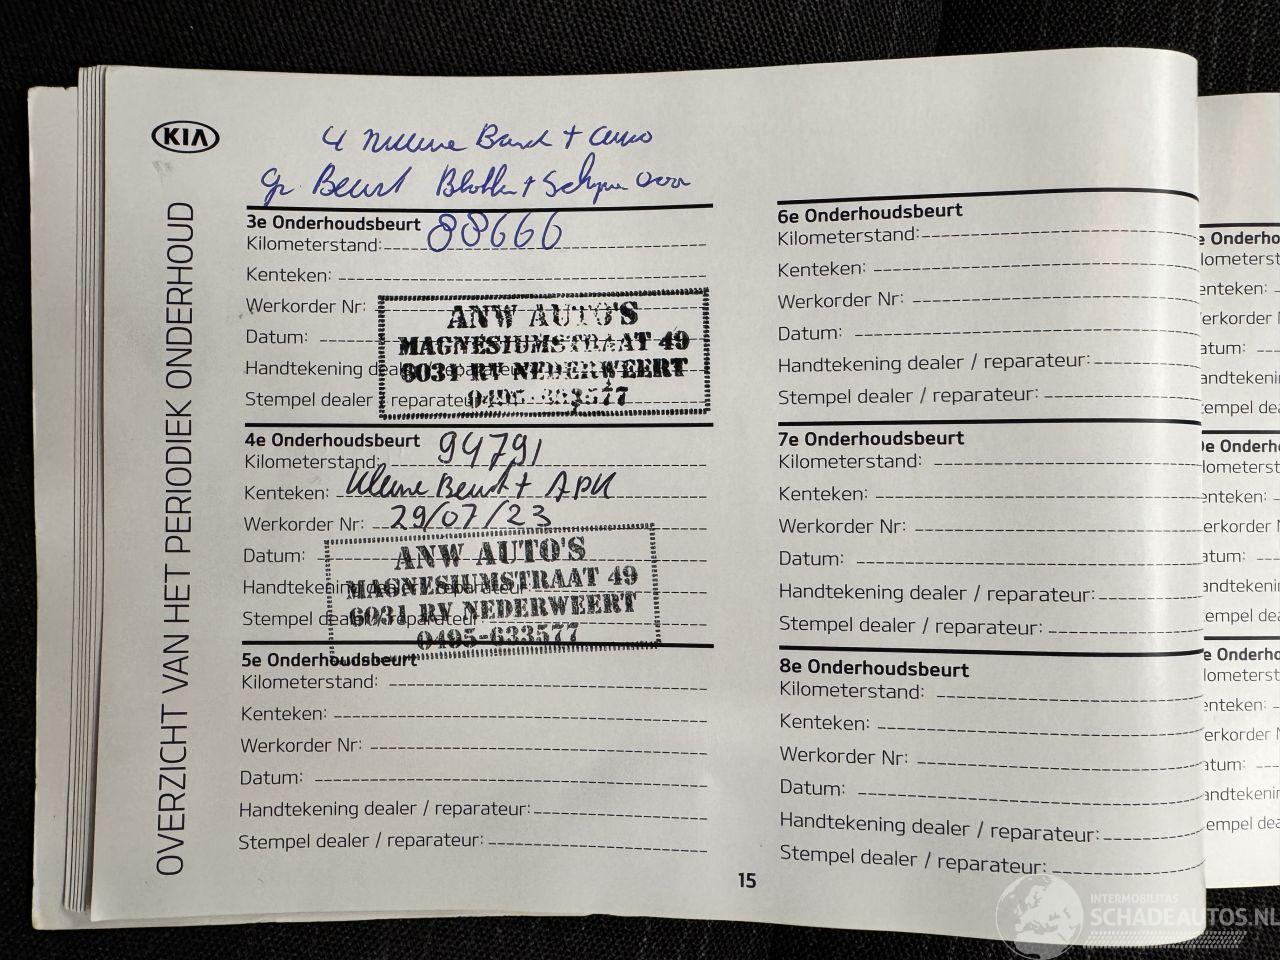 KIA
OVERZICHT VAN HET PERIODIEK ONDERHOUD
4 nieuwe Band +
Gr Beurt Blokken + Schijven voor
3e Onderhoudsbeurt
Kilometerstand: 88666
Kenteken:
Werkorder Nr:
Datum:
Handtekening dealer / reparateur:
Stempel dealer / reparateur:
ANW AUTO'S
MAGNESIUMSTRAAT 49
6031 RV NEDERWEERT
0495-633577
4e Onderhoudsbeurt
Kilometerstand: 94791
Kenteken: Kleine Beurt + APK
Werkorder Nr: 29/07/23
Datum:
Handtekening dealer / reparateur:
Stempel dealer / reparateur:
ANW AUTO'S
MAGNESIUMSTRAAT 49
6031 RV NEDERWEERT
0495-633577
5e Onderhoudsbeurt
Kilometerstand:
Kenteken:
Werkorder Nr:
Datum:
Handtekening dealer / reparateur:
Stempel dealer / reparateur:
6e Onderhoudsbeurt
Kilometerstand:
Kenteken:
Werkorder Nr:
Datum:
Handtekening dealer / reparateur:
Stempel dealer / reparateur:
7e Onderhoudsbeurt
Kilometerstand:
Kenteken:
Werkorder Nr:
Datum:
Handtekening dealer / reparateur:
Stempel dealer / reparateur:
8e Onderhoudsbeurt
Kilometerstand:
Kenteken:
Werkorder Nr:
Datum:
Handtekening dealer / reparateur:
Stempel dealer / reparateur:
15
INTERMOBILITAS
SCHADEAUTOS.NL